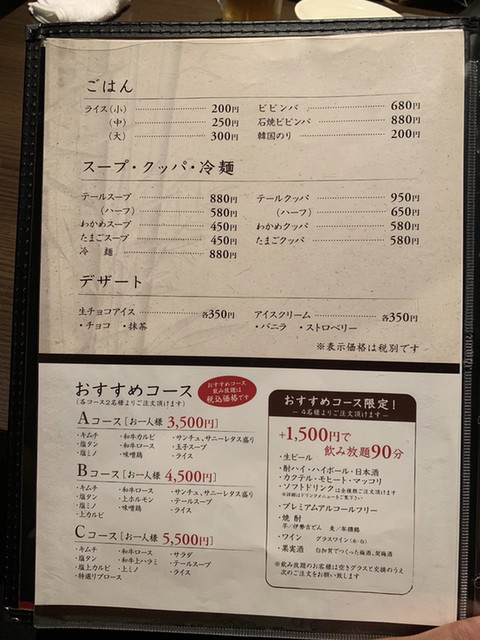 ごはん
ライス（小） 200円
（中） 250円
（大） 300円
ビビンバ 680円
石焼ビビンバ 880円
韓国のり 200円
スープ・クッパ・冷麺
テールスープ 880円
（ハーフ） 580円
わかめスープ 450円
たまごスープ 450円
冷 麺 880円
テールクッパ 950円
（ハーフ） 650円
わかめクッパ 580円
たまごクッパ 580円
デザート
生チョコアイス 各350円
・チョコ ・抹茶
アイスクリーム 各350円
・バニラ ・ストロベリー
※表示価格は税別です
おすすめコース
（各コース2名様よりご注文頂けます）
おすすめコース
飲み放題は
税込価格です
Aコース［お一人様 3,500円］
・キムチ ・和牛カルビ ・サンチュ、サニーレタス盛り
・塩タン ・和牛ロース ・玉子スープ
・塩ミノ ・味噌鶏 ・ライス
Bコース［お一人様 4,500円］
・キムチ ・和牛ロース ・サンチュ、サニーレタス盛り
・塩タン ・上ホルモン ・テールスープ
・塩ミノ ・味噌鶏 ・ライス
・上カルビ
Cコース［お一人様 5,500円］
・キムチ ・和牛ロース ・サラダ
・塩タン ・和牛上ハラミ ・テールスープ
・塩上カルビ ・上ミノ ・ライス
・特選リブロース
おすすめコース限定！
― 4名様よりご注文頂けます ―
+1,500円で
飲み放題90分
・生ビール
・酎ハイ・ハイボール・日本酒
・カクテル・モヒート・マッコリ
・ソフトドリンクは全種類ご注文頂けます
※詳細はドリンクメニューをご覧下さい
・プレミアムアルコールフリー
・焼 酎
芋／伊勢吉どん 麦／和穂鶴
・ワイン グラスワイン（赤・白）
・果実酒 自加賀でつくった梅酒、
※飲み放題のお客様は空きグラスと交換のうえ
次のご注文をお願い致します